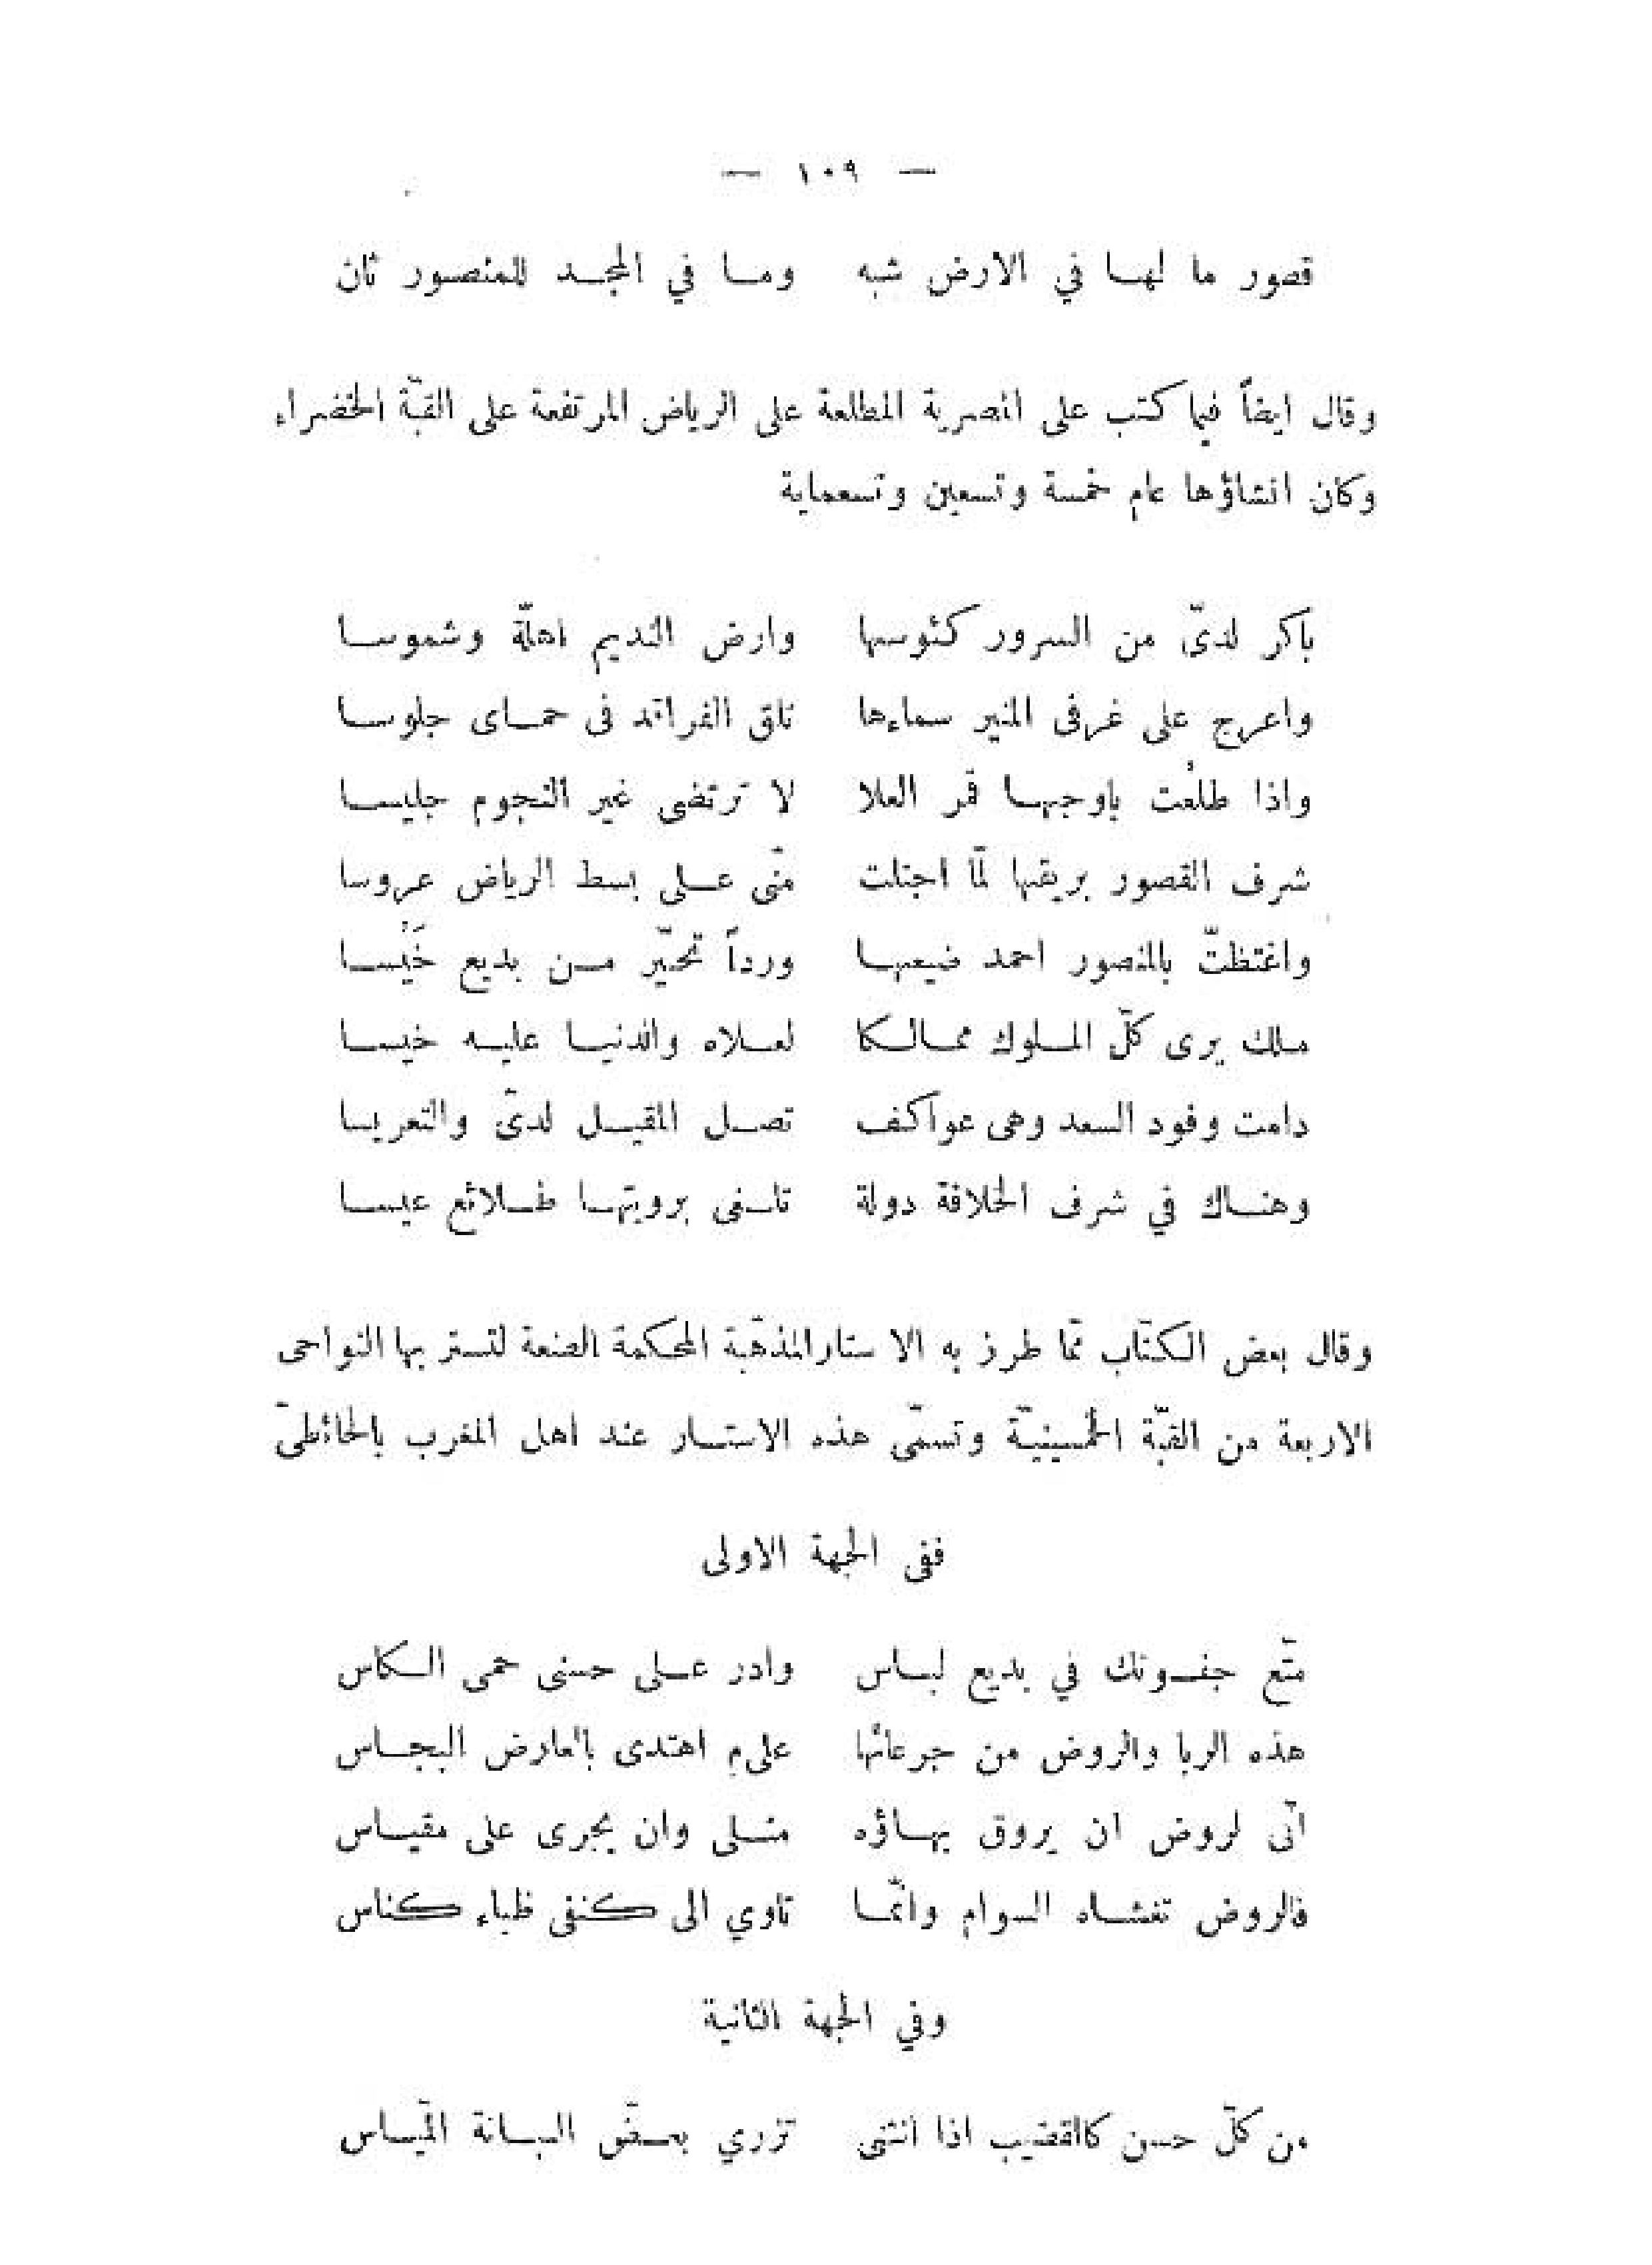 — ١٠٩ —
قصور ما لها في الارض شبه وما في المجد للمنصور ثان
وقال ايضاً فيما كتب على المصرية المطلعة على الرياض المرتفعة على القبّة الخضراء
وكان انشاؤها عام خمسة وتسعين وتسعماية
باكر لدىّ من السرور كئوسها وارض النديم اهلّة وشموسا
واعرج على غرفى المنير سماءها تلق الفراقد فى حماى جلوسا
واذا طلعْت باوجها قمر العلا لا ترتضى غير النجوم جليسا
شرف القصور بريقها لمّا اجتلت منّى على بسط الرياض عروسا
واغتظتّ بالمنصور احمد ضيعها ورداً تحيّر من بديع خَيْسا
ملك يرى كلّ الملوك ممالكا لعلاه والدنيا عليه خيسا
دامت وفود السعد وهى عواكف تصل المقيل لدىّ والتعريسا
وهناك في شرف الخلافة دولة تلفى برويتها طلائع عيسا
وقال بعض الكتّاب ممّا طرز به الاستار المذهّبة المحكمة الصنعة لتستر بها النواحى
الاربعة من القبّة الخمسينيّة وتسمّى هذه الاستار عند اهل المغرب بالحائطىّ
ففى الجهة الاولى
متّع جفونك في بديع لباس وادر على حسنى حمى الكاس
هذه الربا والروض من جرعائها علىم اهتدى بالعارض البجاس
أنّى لروض ان يروق بهاؤه مثلى وان يجرى على مقياس
فالروض تغشاه السوام وانّما تاوي الى كنفى ظباء كناس
وفي الجهة الثانية
من كلّ حسن كالقضيب اذا انثنى تزري بغصن البانة الميّاس